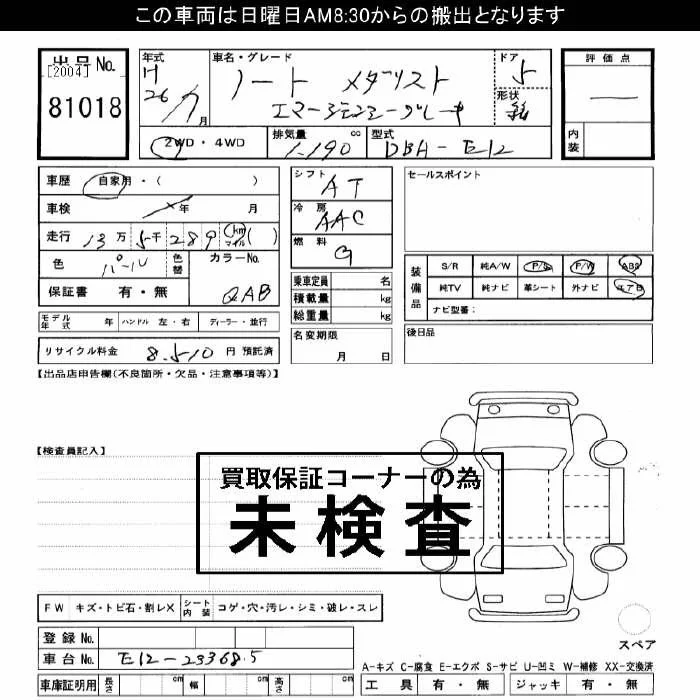 この車両は日曜日AM8:30からの搬出となります
出品No.
[2004]
81018
年式 H 26/7月
車名・グレード ノート メダリスト
エマージェンシーブレーキ
ドア 5
形状
評価点 —
内装
2WD・4WD
排気量 1,190 cc
型式 DBA-E12
車歴 自家用・( )
車検 年 月
走行 13万5千289 km マイル ( )
色 パール 色替 カラーNo. QAB
保証書 有・無
モデル年式 年 ハンドル 左・右 ディーラー・並行
リサイクル料金 8,510 円 預託済
シフト AT
冷房 AAC
燃料 G
乗車定員 名
積載量 kg
総重量 kg
名変期限 月 日
セールスポイント
装備品
S/R 純A/W P/S P/W ABS
純TV 純ナビ 革シート 外ナビ エアB
ナビ型番:
後日品
【出品店申告欄(不良箇所・欠品・注意事項等)】
【検査員記入】
買取保証コーナーの為
未検査
FW キズ・トビ石・割レX シート内装 コゲ・穴・汚レ・シミ・破レ・スレ
登録No.
車台No. E12-233685
車庫証明用 長さ cm 幅 cm 高さ cm
スペア
A-キズ C-腐食 E-エクボ S-サビ U-凹ミ W-補修 XX-交換済
工具 有・無 ジャッキ 有・無